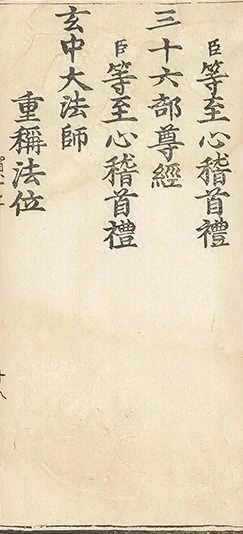 臣等至心稽首禮
三十六部尊經
臣等至心稽首禮
玄中大法師
重稱法位
十八